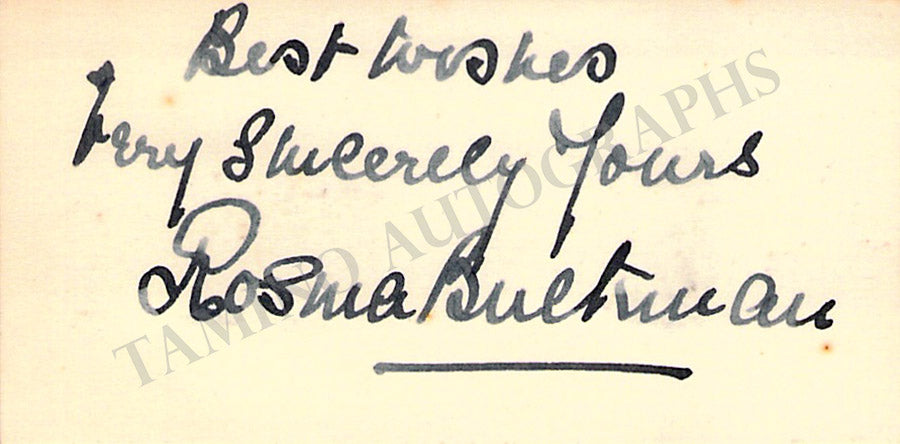 Best wishes
Very Sincerely Yours
Rosina Buckman
TAMINO AUTOGRAPHS